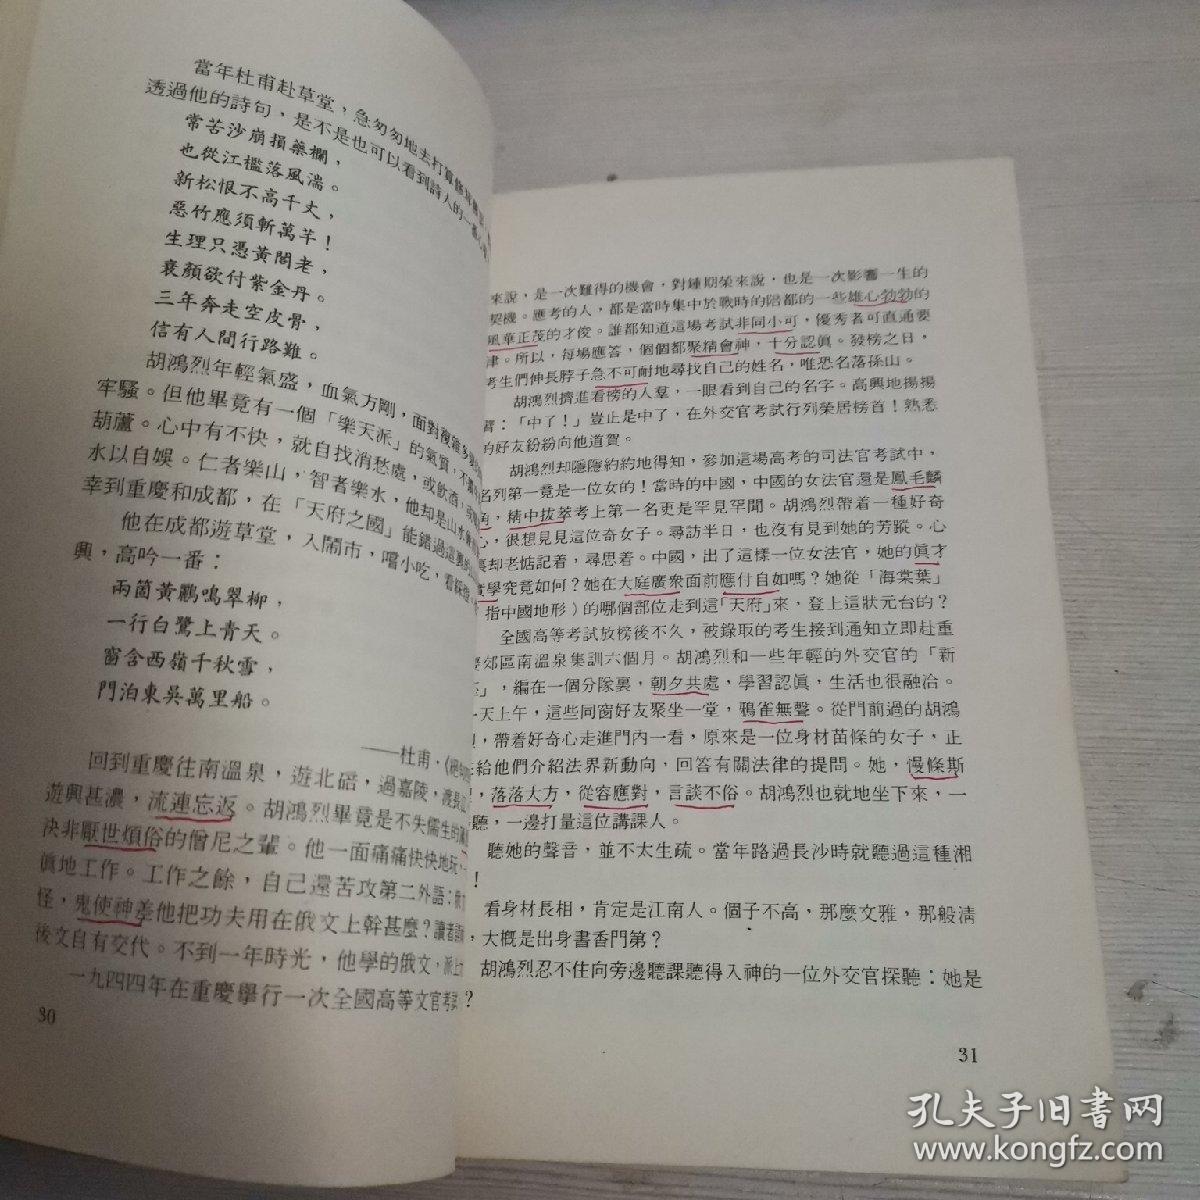 當年杜甫赴草堂，急匆匆地去打算
透過他的詩句，是不是也可以看到詩人的一
常苦沙崩損藥欄，
也從江檻落風湍。
新松恨不高千丈，
惡竹應須斬萬竿！
生理只憑黃閣老，
衰顏欲付紫金丹。
三年奔走空皮骨，
信有人間行路難。
胡鴻烈年輕氣盛，血氣方剛，面對複雜多
牢騷。但他畢竟有一個「樂天派」的氣質，不
葫蘆。心中有不快，就自找消愁處，或飲酒，或
水以自娛。仁者樂山，智者樂水，他却是山水
幸到重慶和成都，在「天府之國」能錯過這
他在成都遊草堂，入鬧市，嚐小吃，看
興，高吟一番：
兩箇黃鸝鳴翠柳，
一行白鷺上青天。
窗含西嶺千秋雪，
門泊東吳萬里船。
——杜甫．《絕
回到重慶往南溫泉，遊北碚，過嘉陵，渡長
遊興甚濃，流連忘返。胡鴻烈畢竟是不失儒生的
決非厭世煩俗的僧尼之輩。他一面痛痛快快地玩，一
滇地工作。工作之餘，自己還苦攻第二外語：俄
怪，鬼使神差他把功夫用在俄文上幹甚麼？讀者
後文自有交代。不到一年時光，他學的俄文，派上
一九四四年在重慶舉行一次全國高等文官考試
30
來說，是一次難得的機會，對鍾期榮來說，也是一次影響一生的
契機。應考的人，都是當時集中於戰時的陪都的一些雄心勃勃的
風華正茂的才俊。誰都知道這場考試非同小可，優秀者可直通要
津。所以，每場應答，個個都聚精會神，十分認眞。發榜之日，
考生們伸長脖子急不可耐地尋找自己的姓名，唯恐名落孫山。
胡鴻烈擠進看榜的人羣，一眼看到自己的名字。高興地揚揚
臂：「中了！」豈止是中了，在外交官考試行列榮居榜首！熟悉
的好友紛紛向他道賀。
胡鴻烈却隱隱約約地得知，參加這場高考的司法官考試中，
名列第一竟是一位女的！當時的中國，中國的女法官還是鳳毛麟
角，精中拔萃考上第一名更是罕見罕聞。胡鴻烈帶着一種好奇
心，很想見見這位奇女子。尋訪半日，也沒有見到她的芳蹤。心
裏却老惦記着，尋思着。中國，出了這樣一位女法官，她的眞才
實學究竟如何？她在大庭廣衆面前應付自如嗎？她從「海棠葉」
指中國地形）的哪個部位走到這「天府」來，登上這狀元台的？
全國高等考試放榜後不久，被錄取的考生接到通知立即赴重
慶郊區南溫泉集訓六個月。胡鴻烈和一些年輕的外交官的「新
」，編在一個分隊裏，朝夕共處，學習認眞，生活也很融洽。
一天上午，這些同窗好友聚坐一堂，鴉雀無聲。從門前過的胡鴻
烈，帶着好奇心走進門內一看，原來是一位身材苗條的女子，正
在給他們介紹法界新動向，回答有關法律的提問。她，慢條斯
，落落大方，從容應對，言談不俗。胡鴻烈也就地坐下來，一
聽，一邊打量這位講課人。
聽她的聲音，並不太生疏。當年路過長沙時就聽過這種湘
！
看身材長相，肯定是江南人。個子不高，那麼文雅，那般淸
，大概是出身書香門第？
胡鴻烈忍不住向旁邊聽課聽得入神的一位外交官探聽：她是
？
31
孔夫子旧书网
www.kongfz.com